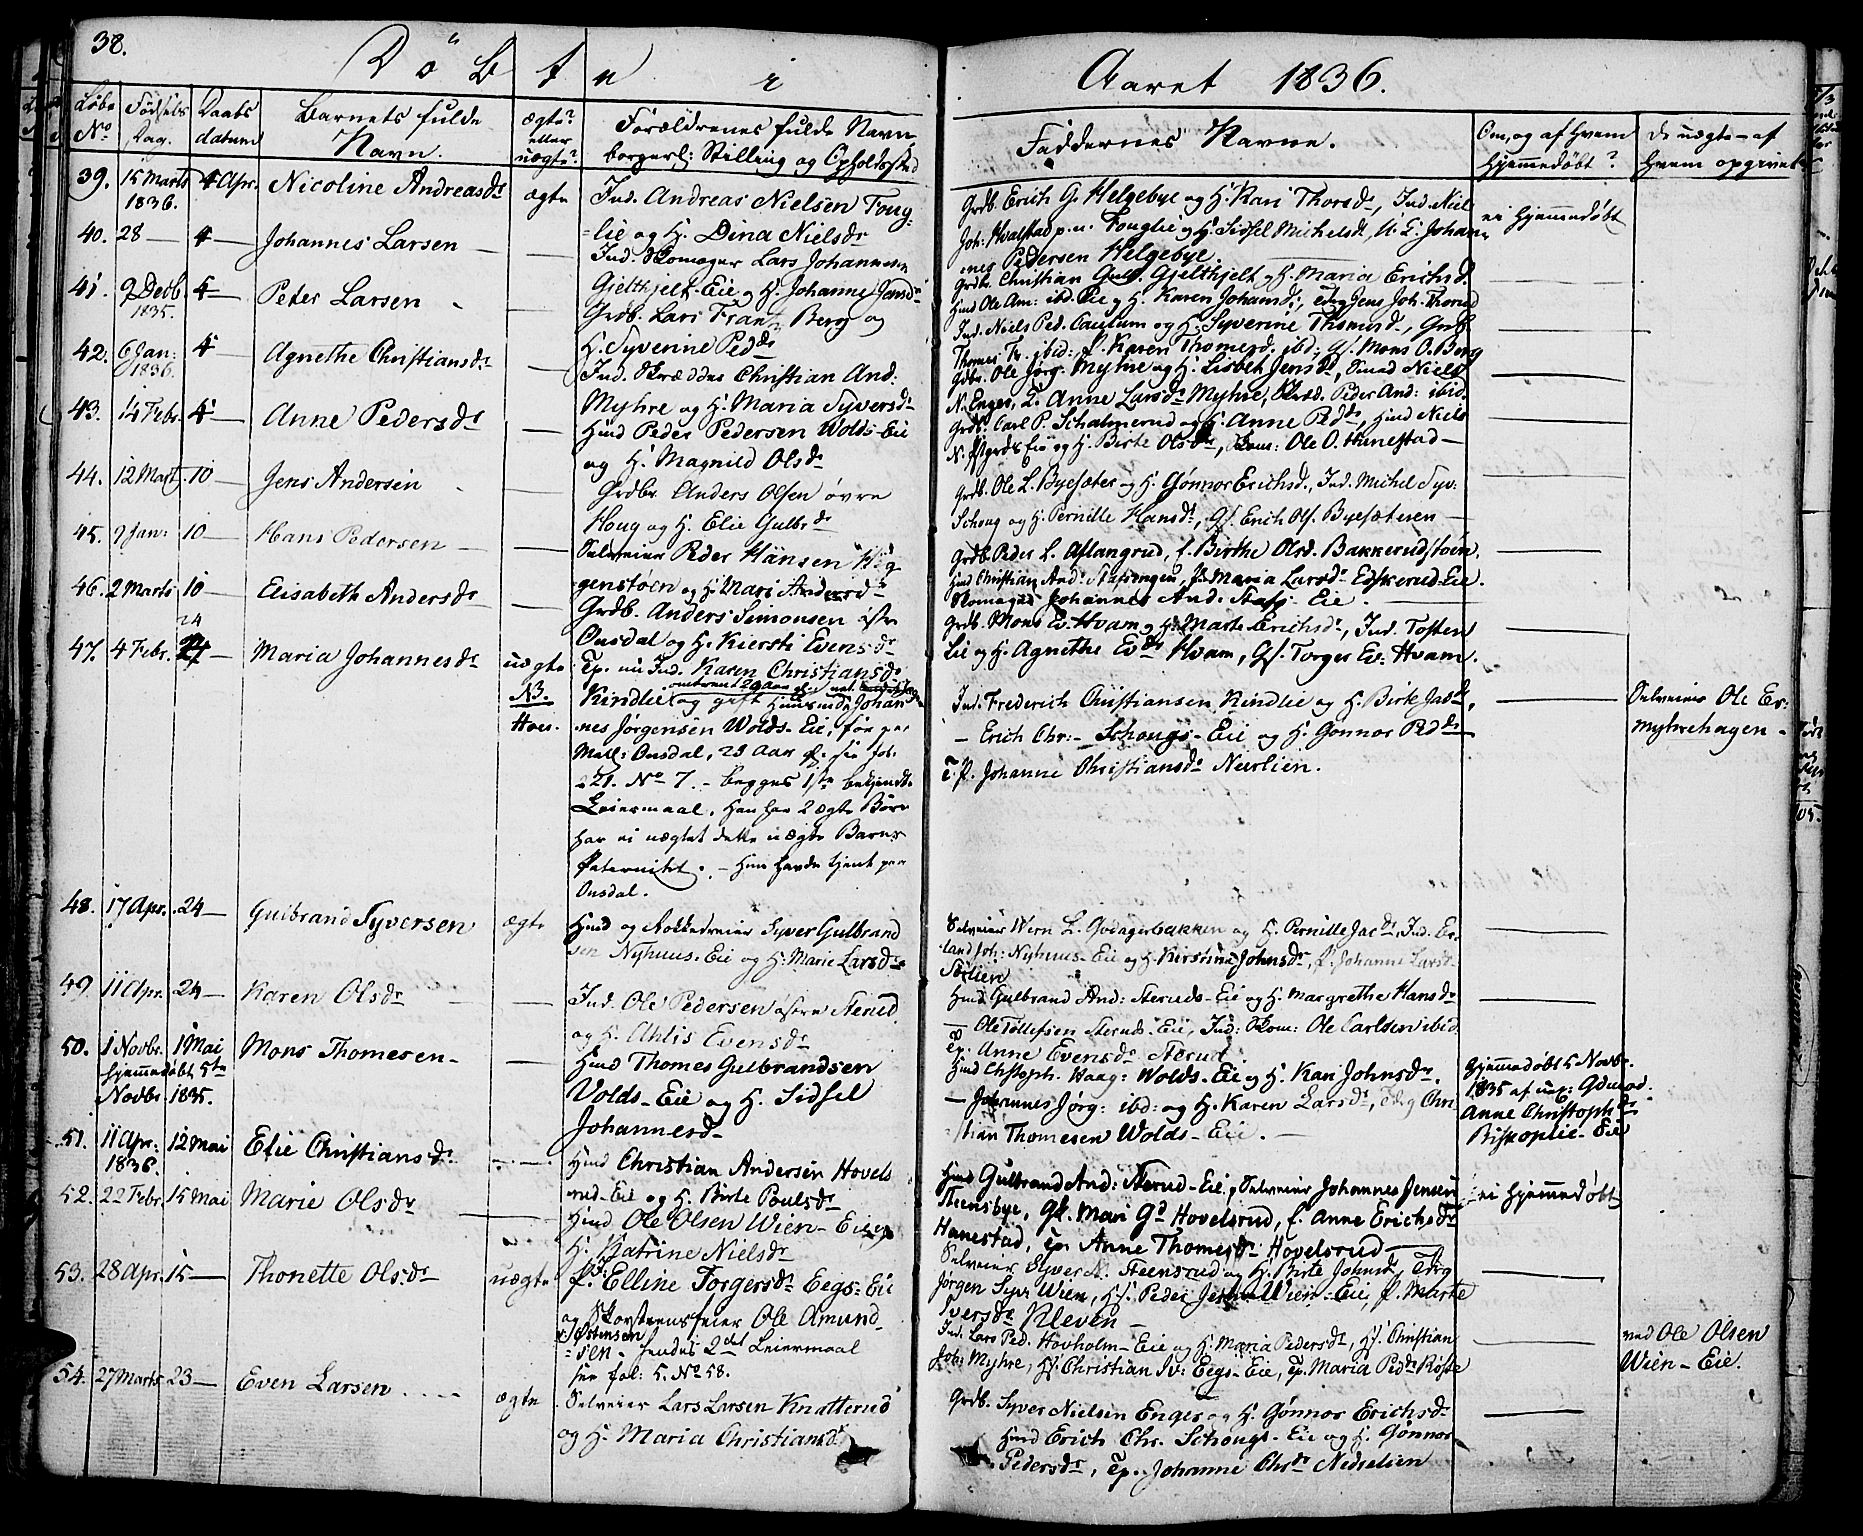 38.
Döbte i
Aaret 1836.
Löbe No
Födsels Dag.
Daabs datum
Barnets fulde Navn.
ægte? eller uægte?
Forældrenes fulde Navn, borgerl: Stilling og Opholdssted
Faddernes Navne.
Om, og af Hvem Hjemmedøbt?
De uægte - af hvem opgivet
39. 15 Marts 1836. 4 Apr. Nicoline Andreasdr ægte
Ind. Andreas Nielsen Foug-
lie og H. Dina Nielsdr
Grdb. Erich G. Helgebye og H. Kari Thorsdr, Ind. Niel
Joh: Hvalstad p.n. Fouglie og H. Sidsel Michelsd, U. L. Johan
nes Pedersen Helgebye.
ei Hjemmedøbt
40. 28 — 4 — Johannes Larsen —
Ind. Skomager Lars Johannesen
Gieltkjelt-Eie og H. Johanne Jonsdr
Grdb. Christian Gulb. Gjeltkjelt og H. Maria Erichsd.
Hmd Ole Am: ibd. Eie og H. Karen Johansdr, Jens Joh. Thorud
41. 9 Decb. 1835. 4 — Peter Larsen
Grdb. Lars Frantz Berg og
H. Syverine Peddr
Ind. Niels Ped. Caulum og H. Syverine Thomasd.,
Thomes Fr. ibid: P. Karen Thomesd: ibd: Gs. Mons O. Berg
42. 6 Jan: 1836. 4 — Agnethe Christiansdr
Ind. Skrædder Christian And:
Myhre og H. Maria Syversdr
Gdbr. Ole Jörg. Myhre og H. Lisbeth Jensdr, Niels
N. Enger, P. Anne Larsdr Myhre, Peder And: ibid.
43. 14 Febr. 4 — Anne Pedersdr
Hmd Peder Pedersen Wolds-Eie
og H. Magnild Olsdr
Grdb. Carl P. Schalmerud og H. Anne Peddr, Hmd Niels
N. Eie og H. Birte Olsdr, Skom: Ole O. Hanestad —
44. 12 Mart. 10 — Jens Andersen
Grdbr. Anders Olsen övre
Houg og H. Elie Gulbrdr
Grdb. Ole L. Byesæter og H. Gønnor Erichsd., Ind. Michel Syv:
Schoug og H. Pernille Hansdr, Gs. Erich Ols. Byesæteren —
45. 9 Jan: 10 — Hans Pedersen —
Selveier Peder Hansen Hög-
genstøen og H. Mari Andersdr
Grdb. Peder L. Aslangrud, P. Birthe Olsd. Bakkerudstøen.
Hmd Christian And: Stafsengen, P. Maria Larsdr Edskerud-Eie.
Skomager Johannes And. Stafs- Eie.
46. 2 Marts 10 — Elisabeth Andersdr
Grdb. Anders Simonsen østre
Onsdal og H. Kiersti Evensdr
Grdb. Mons Ev. Hvam og H. Marte Erichsdr, Ind. Tosten
Lie og H. Agnethe Evdr Hvam, Gs. Torger Ev: Hvam.
47. 4 Febr. 24 — Maria Johannesdr uægte NB. Hoer.
Tp. nu Ind. Karen Christiansdr
Rindlie og gift Huusmand Johan
nes Jørgensen Wolds-Eie, før paa
Mell: Onsdal, 29 Aar gl. see fol.
221. No 7. - begges 1ste bekjendte
Leiermaal. Han har 2 ægte Børn
har ei nægtet dette uægte Barns
Paternitet. - Hun havde tjent paa
Onsdal.
Ind. Frederich Christiansen Rindlie og H. Birte Jacdr,
— Erich Chr: - Schougs-Eie og H. Gønnor Peddr —
T. P. Johanne Christiansdr Nuslien.
Selveier Ole Er: Myhrehagen -
48. 17 Apr. 24 — Gulbrand Syversen ægte
Hmd og Rokkedreier Syver Gulbrand
sen Nyhuus-Eie og H. Marie Larsdr
Selveier Wern L. Godagerbakken og H. Pernille Jacdr, Ind. Er-
land Joh: Nyhuus-Eie og H. Kirstine Johnsdr, P. Johanne Larsdr
Sætlien
49. 11 Apr. 24 — Karen Olsdr
Ind. Ole Pedersen østre Sterud
og H. Ahlis Evensdr
Hmd Gulbrand And: Steruds-Eie og H. Margrethe Hansdr
— Ole Tollefsen Steruds-Eie, Ind: Skom: Ole Carlsen ibid
Tp. Anne Evensdr Sterud.
50. 1 Novbr. 1 Mai Mons Thomesen-
Hjemmedøbt 5te Novbr. 1835.
Hmd Thomes Gulbrandsen
Volds-Eie og H. Sidsel
Johannesd-
Hmd Christoph. Haag: Wolds-Eie og H. Kari Johnsdr.
— Johannes Jørg: ibd: og H. Karen Larsdr, Chri
stian Thomesen Wolds-Eie. —
Hjemmedøbt 5 Novbr. 1835 af
Anne Christophdr
Biskoplie-Eie
51. 11 Apr. 1836. 12 Mai Elie Christiansdr
Hmd Christian Andersen Hovels
rud-Eie og H. Birte Poulsdr
Hmd Gulbrand And: Sterud-Eie, Selveier Johannes Jensen
Steensbye, Gk. Mari Gd Hovelsrud, P. Anne Erichsdr
Hanestad, Tp. Anne Thomesdr Hovelsrud —
ei Hjemmedøbt
52. 22 Febr. 15 Mai Marie Olsdr
Hmd Ole Olsen Wien-Eie og
H. Katrine Nielsdr
Selveier Syver N. Steensrud og H. Birte Johnsd,
Jørgen Syv: Wien, Hs. Peder Jens: Wien-Eie, P. Marte
Iversdr Kleven —
53. 28 Apr. 15 — Thonette Olsdr uægte
P. Elline Torgersdr Eegs-Eie
og Skorsteensfeier Ole Amund
Østensen
sen - hendes 2det Leiermaal
see fol: 5. No 58.
Ind. Lars Ped. Hovholm-Eie og H. Maria Pedersdr, Hs. Christian
Joh: Myhre, Hs. Christian Iv: Eegs-Eie, Tp. Maria Peddr Røste
ved Ole Olsen Wien-Eie.
54. 27 Marts. 23 — Even Larsen ægte
Selveier Lars Larsen Knatterud
og H. Maria Christiansdr
Grdb. Syver Nielsen Enger og H. Gønnor Erichsdr
Hmd Erich Chr. Schougs-Eie og H. Gønnor
Pedersdr, Tp. Johanne Chrdr Nedselien